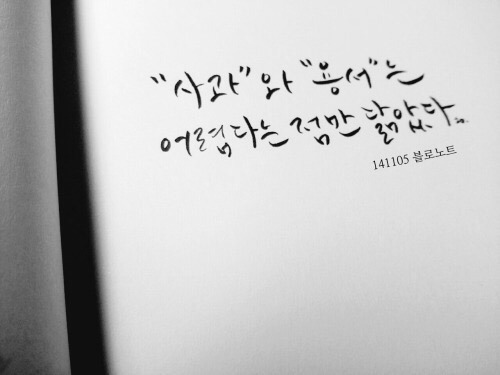 "사과"와 "용서"는
어렵다는 점만 닮았다
141105 블로노트